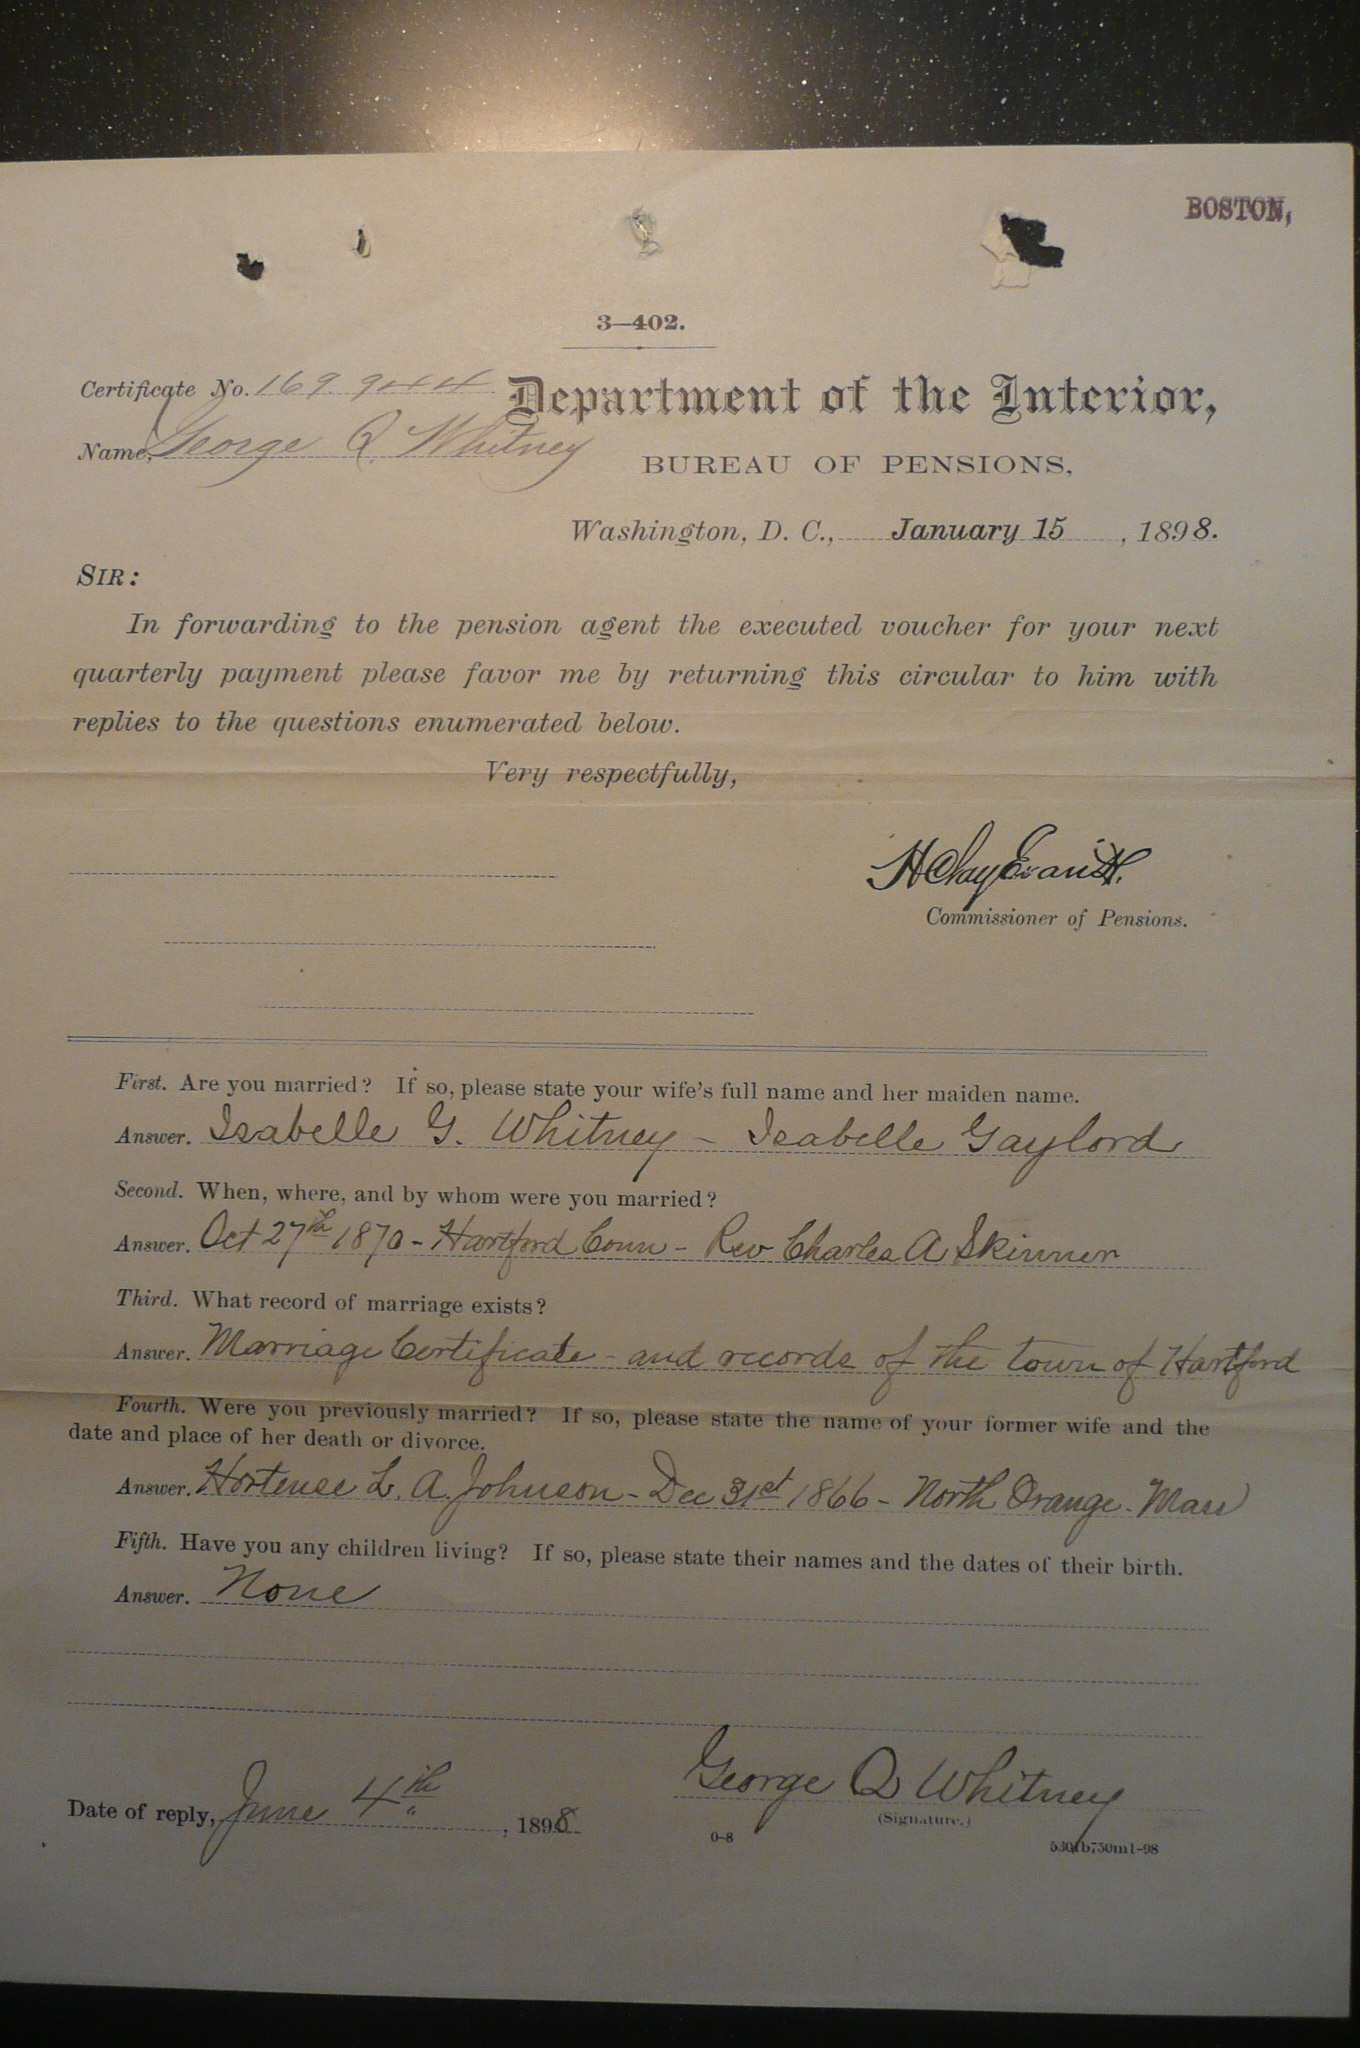 BOSTON,
3—402.
Certificate No. 169.944
Department of the Interior,
Name, George Q. Whitney
BUREAU OF PENSIONS,
Washington, D. C., January 15, 1898.
SIR:
In forwarding to the pension agent the executed voucher for your next
quarterly payment please favor me by returning this circular to him with
replies to the questions enumerated below.
Very respectfully,
H Clay Evans
Commissioner of Pensions.
First. Are you married? If so, please state your wife's full name and her maiden name.
Answer. Isabelle G. Whitney - Isabelle Gaylord
Second. When, where, and by whom were you married?
Answer. Oct 27th 1870 - Hartford Conn - Rev Charles A Skinner
Third. What record of marriage exists?
Answer. Marriage Certificate - and records of the town of Hartford
Fourth. Were you previously married? If so, please state the name of your former wife and the
date and place of her death or divorce.
Answer. Hortense L. A. Johnson - Dec 31st 1866 - North Orange - Mass
Fifth. Have you any children living? If so, please state their names and the dates of their birth.
Answer. None
George Q Whitney
Date of reply, June 4th, 1898
(Signature.)
0-8
b750m1-98